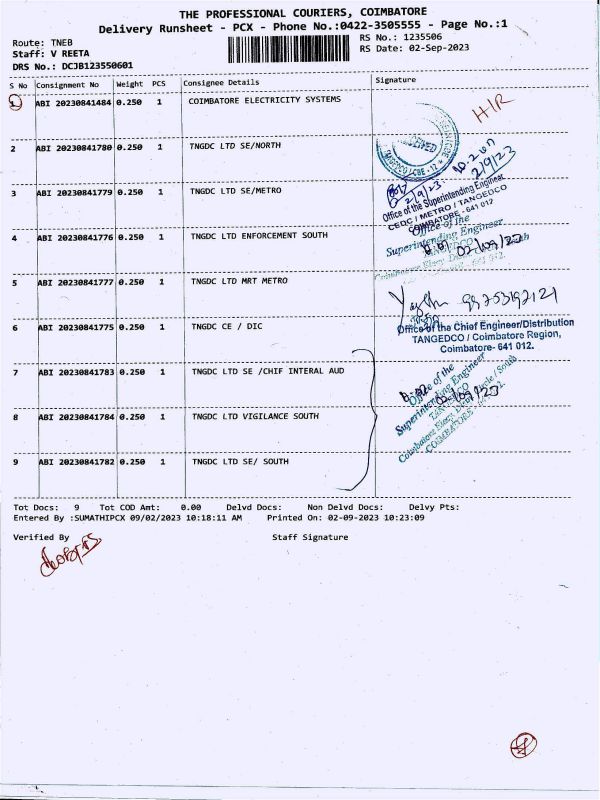 THE PROFESSIONAL COURIERS, COIMBATORE
Delivery Runsheet - PCX - Phone No.:0422-3505555 - Page No.:1
Route: TNEB
Staff: V REETA
DRS No.: DCJB123550601
RS No.: 1235506
RS Date: 02-Sep-2023
S No Consignment No Weight PCS Consignee Details Signature
1 ABI 20230841484 0.250 1 COIMBATORE ELECTRICITY SYSTEMS H/R
2 ABI 20230841780 0.250 1 TNGDC LTD SE/NORTH
2/9/23
3 ABI 20230841779 0.250 1 TNGDC LTD SE/METRO
2/9/23
Office of the Superintending Engineer
CEDC / METRO / TANGEDCO
COIMBATORE - 641 012
4 ABI 20230841776 0.250 1 TNGDC LTD ENFORCEMENT SOUTH
Office of the
Superintending Engineer
TANGEDCO
02/09/23
5 ABI 20230841777 0.250 1 TNGDC LTD MRT METRO
6 ABI 20230841775 0.250 1 TNGDC CE / DIC
Office of the Chief Engineer/Distribution
TANGEDCO / Coimbatore Region,
Coimbatore- 641 012.
7 ABI 20230841783 0.250 1 TNGDC LTD SE /CHIF INTERAL AUD
Office of the
Superintending Engineer
TANGEDCO
02/09/23
8 ABI 20230841784 0.250 1 TNGDC LTD VIGILANCE SOUTH
9 ABI 20230841782 0.250 1 TNGDC LTD SE/ SOUTH
Tot Docs: 9 Tot COD Amt: 0.00 Delvd Docs: Non Delvd Docs: Delvy Pts:
Entered By :SUMATHIPCX 09/02/2023 10:18:11 AM Printed On: 02-09-2023 10:23:09
Verified By Staff Signature